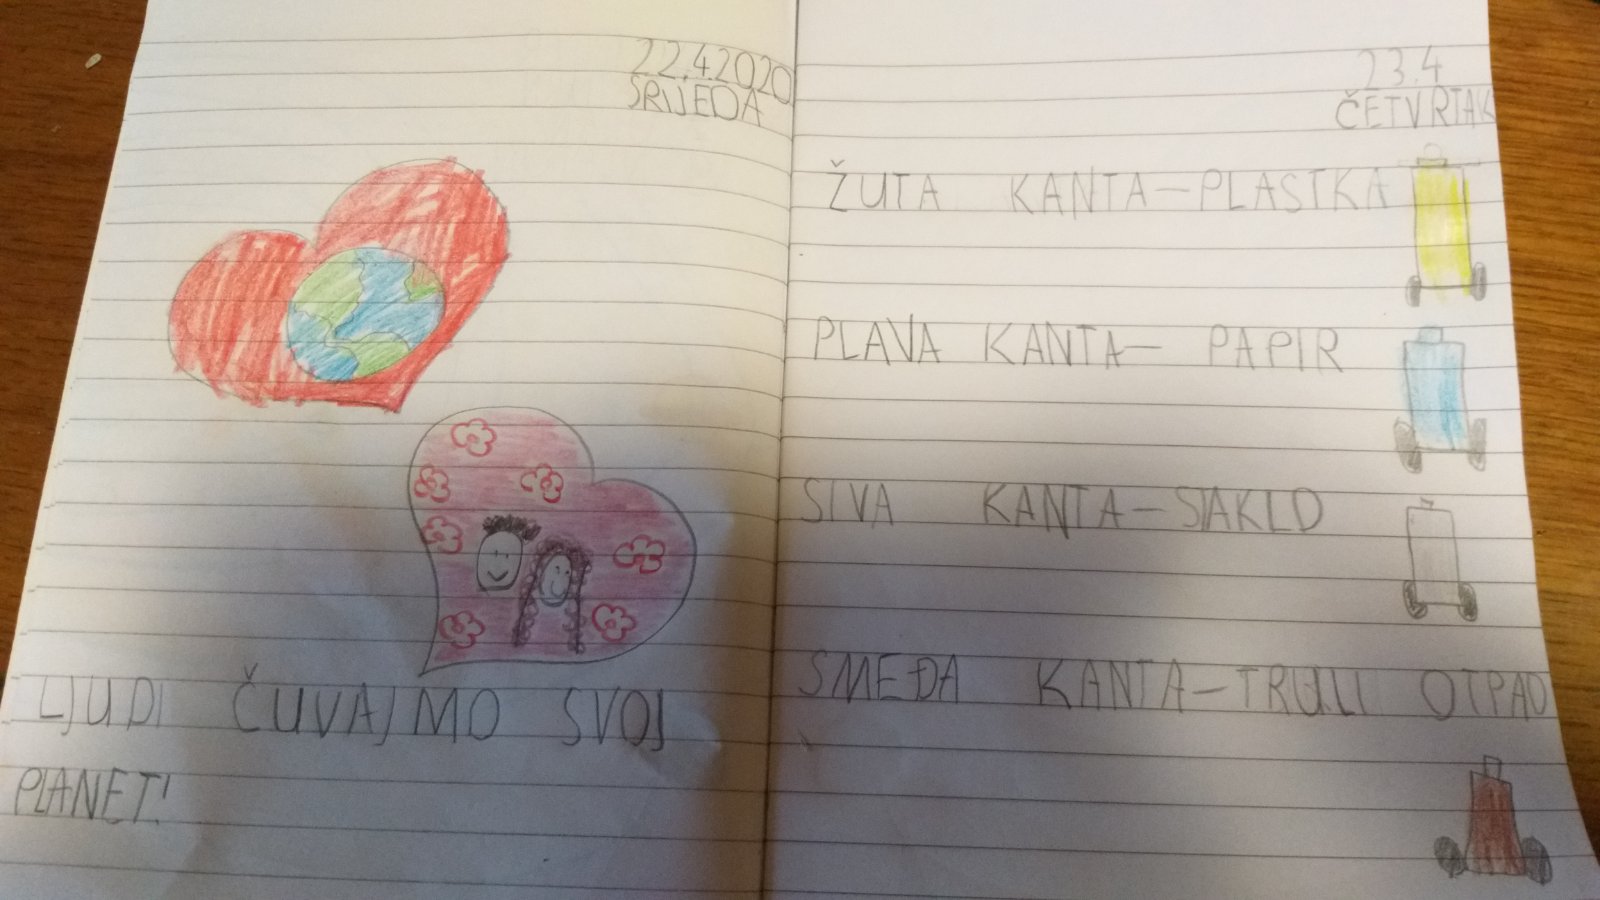 22.4.2020
SRIJEDA
LJUDI ČUVAJMO SVOJ
PLANET!
23.4
ČETVRTAK
ŽUTA KANTA-PLASTKA
PLAVA KANTA- PAPIR
SIVA KANTA-STAKLO
SMEĐA KANTA-TRULI OTPAD